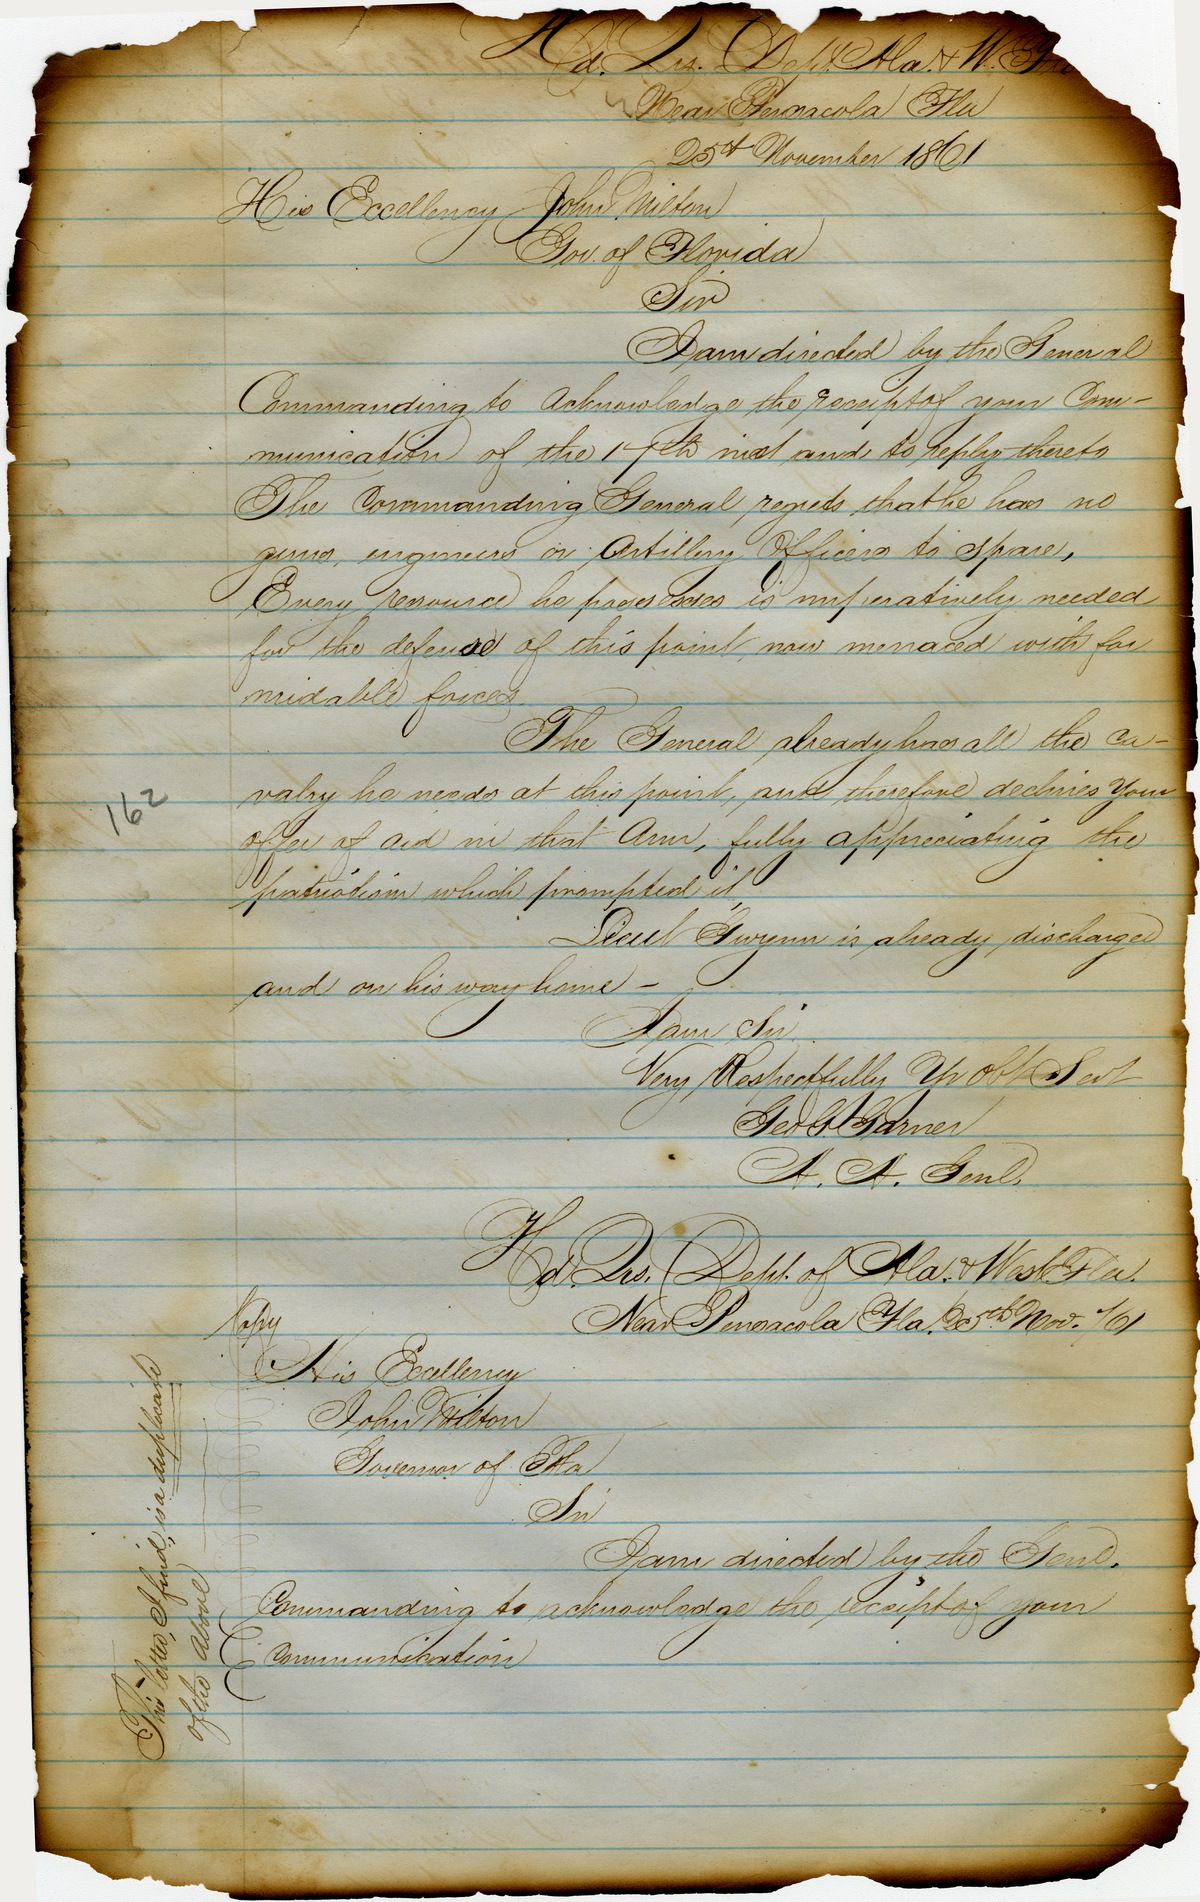 Hd. Qrs. Dept. Ala. & W. Fla
Near Pensacola Fla
25th November 1861
His Excellency John Milton
Gov. of Florida
Sir
I am directed by the General
Commanding to acknowledge the receipt of your Com-
munication of the 17th inst and to reply thereto
The Commanding General regrets that he has no
guns, engineers or Artillery Officers to spare,
Every resource he possesses is imperatively needed
for the defense of this point, now menaced with for
midable forces.
The General already has all the ca-
valry he needs at this point, and therefore declines your
offer of aid in that Arm, fully appreciating the
patriotism which prompted it
Lieut Gwynn is already discharged
and on his way home -
I am Sir
Very Respectfully Yr Obt Servt
Geo G Garner
A. A. Genl.
162
Hd. Qrs. Dept. of Ala. & West Fla.
Near Pensacola Fla. 25th Nov. /61
Copy
His Excellency
John Milton
Governor of Fla
Sir
I am directed by the Genl.
Commanding to acknowledge the receipt of your
Communication
This letter, I find, is a duplicate
of the above